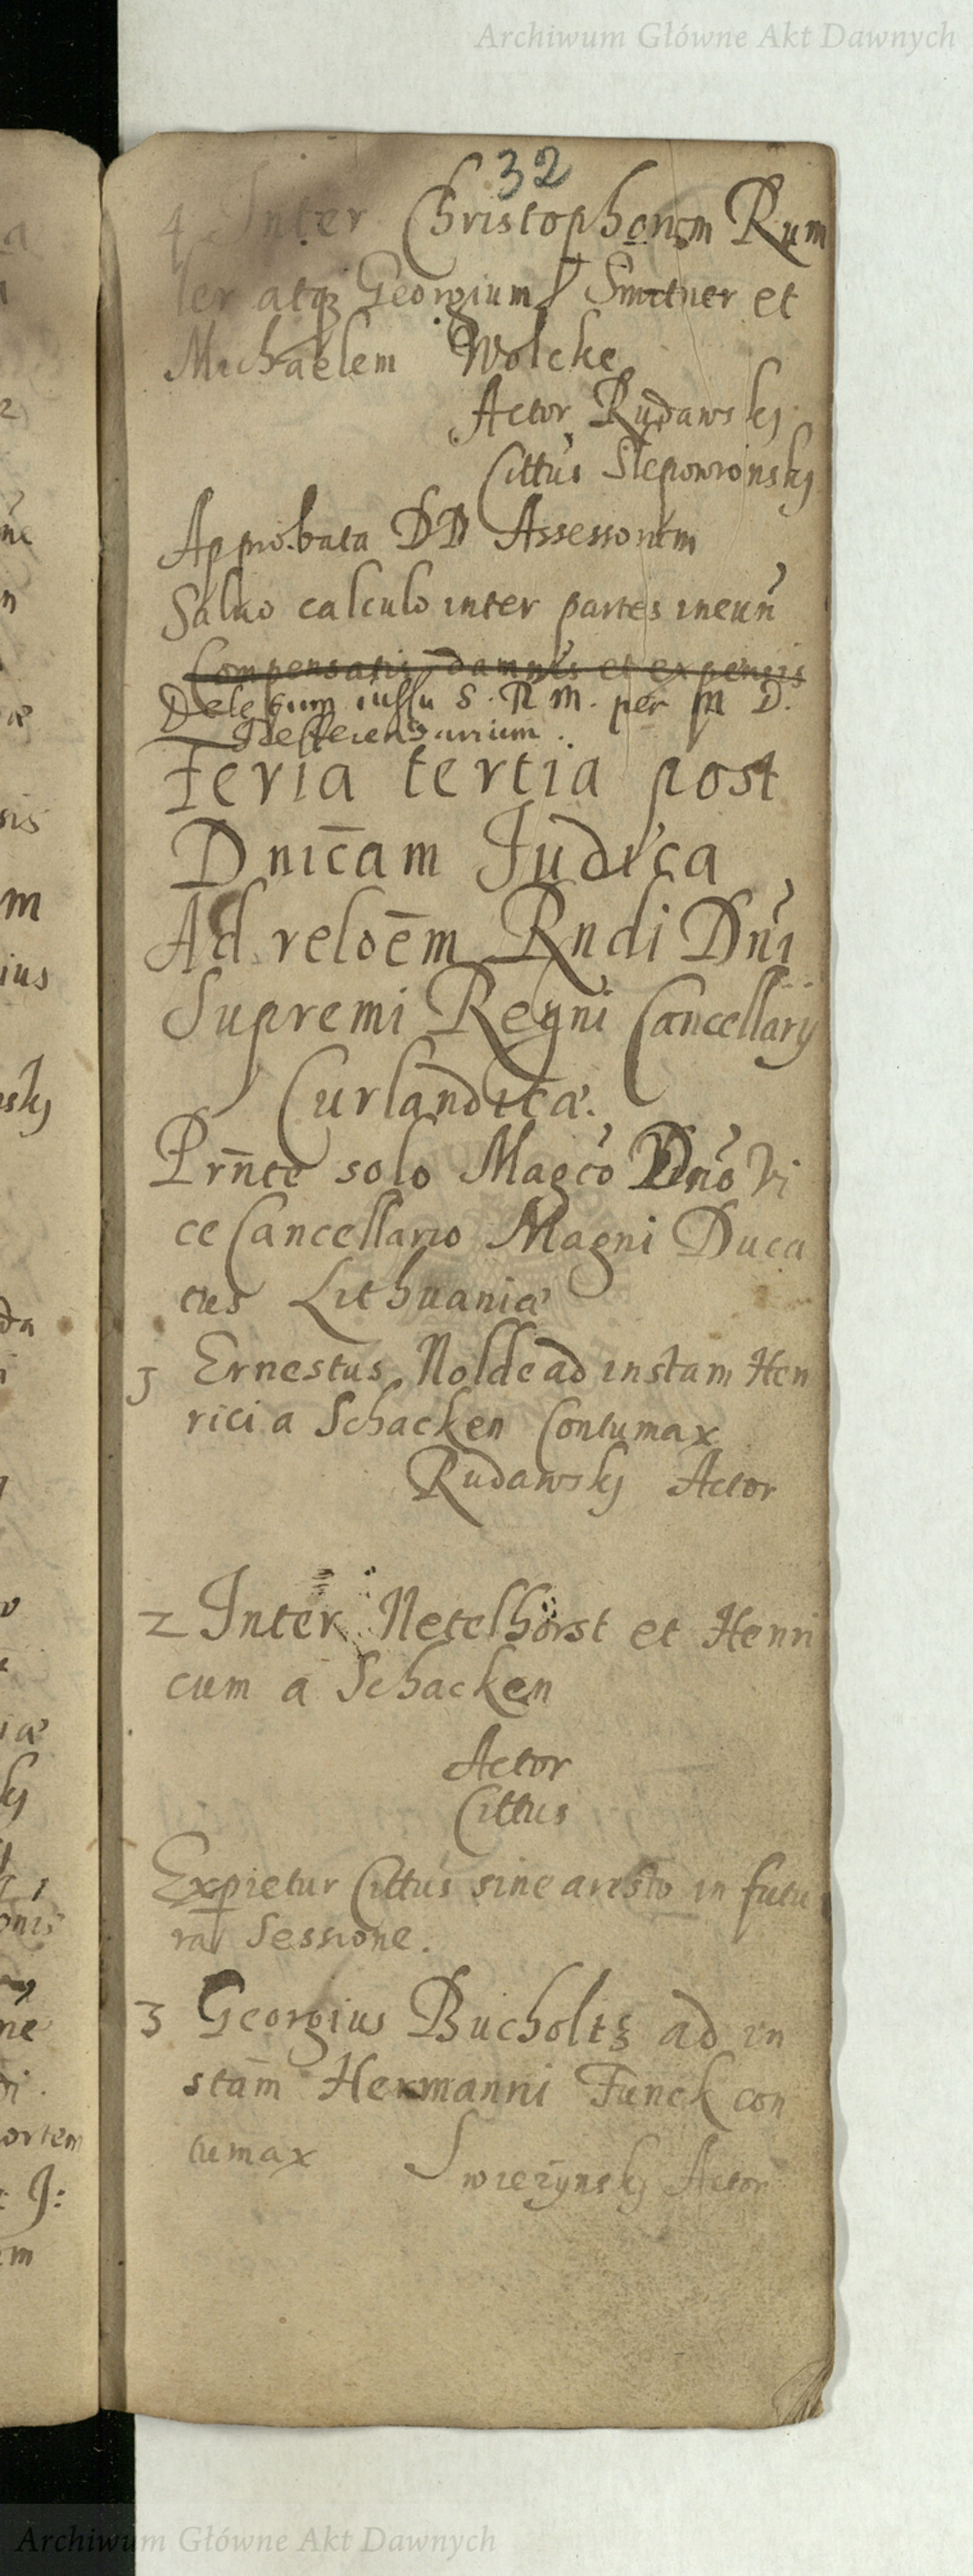 Archiwum Główne Akt Dawnych
32
4 Inter Christophorum Rum
ler atq3 Georgium Smitner et
Michaelem Wolcke
Actor Rudawskj
Cittus Slepowronskj
Approbata DD Assessorum
Saluo calculo inter partes ineun
Compensatis damnis et expensis
Deletum iussu S. R. M. per M D.
Refferendarium.
Feria tertia post
Dnic̄am Judica
Ad reloēm Rndi Dni
Supremi Regni Cancellarij
Curlandicæ.
Prn̄te solo Magco Dno Vi
ce Cancellario Magni Duca
tus Lithuaniæ
1 Ernestus Nolde ad instam Hen
rici a Schacken Contumax
Rudawskj Actor
2 Inter Netelhorst et Henri
cum a Schacken
Actor
Cittus
Expietur Cittus sine aresto in futu
ra Sessione.
3 Georgius Bucholtz ad in
stam̄ Hermanni Funck con
tumax Swiezynskj Actor
Archiwum Główne Akt Dawnych